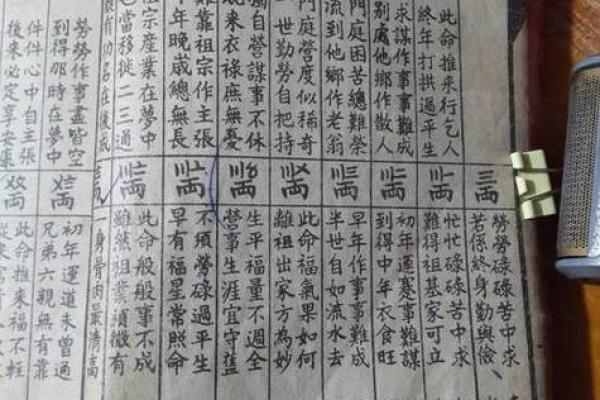 此命推來行乞人
終年打拱過平生
求謀作事事難成
別處他鄉作散人
門庭困苦總難榮
流到他鄉作老翁
門庭營度似稀奇
一世勤勞自把持
獨自營謀事不休
來衣祿庶無憂
難靠祖宗作主張
年晚歲總無長
祖宗產業在夢中
宅當移徙二三通
有功名在後成
勞勞作事盡皆空
到得那時在夢中
件件心中自主張
後來必定享安康
三両
勞勞碌碌苦中求
若係終身勤與儉、
忙忙碌碌苦中求
難得祖基家可立
初年運蹇事難謀
到得中年衣食旺
早年作事事難成
半世自如流水去
此命福氣果如何
離祖出家方為妙
生平福量不週全
營事生涯宜守舊
不須勞碌過平生
早有福星常照命
此命般般事不成
雖然祖業須微有
一身骨肉最清高
初年運道未曾通
兄弟六親無有靠
此命推來福不輕